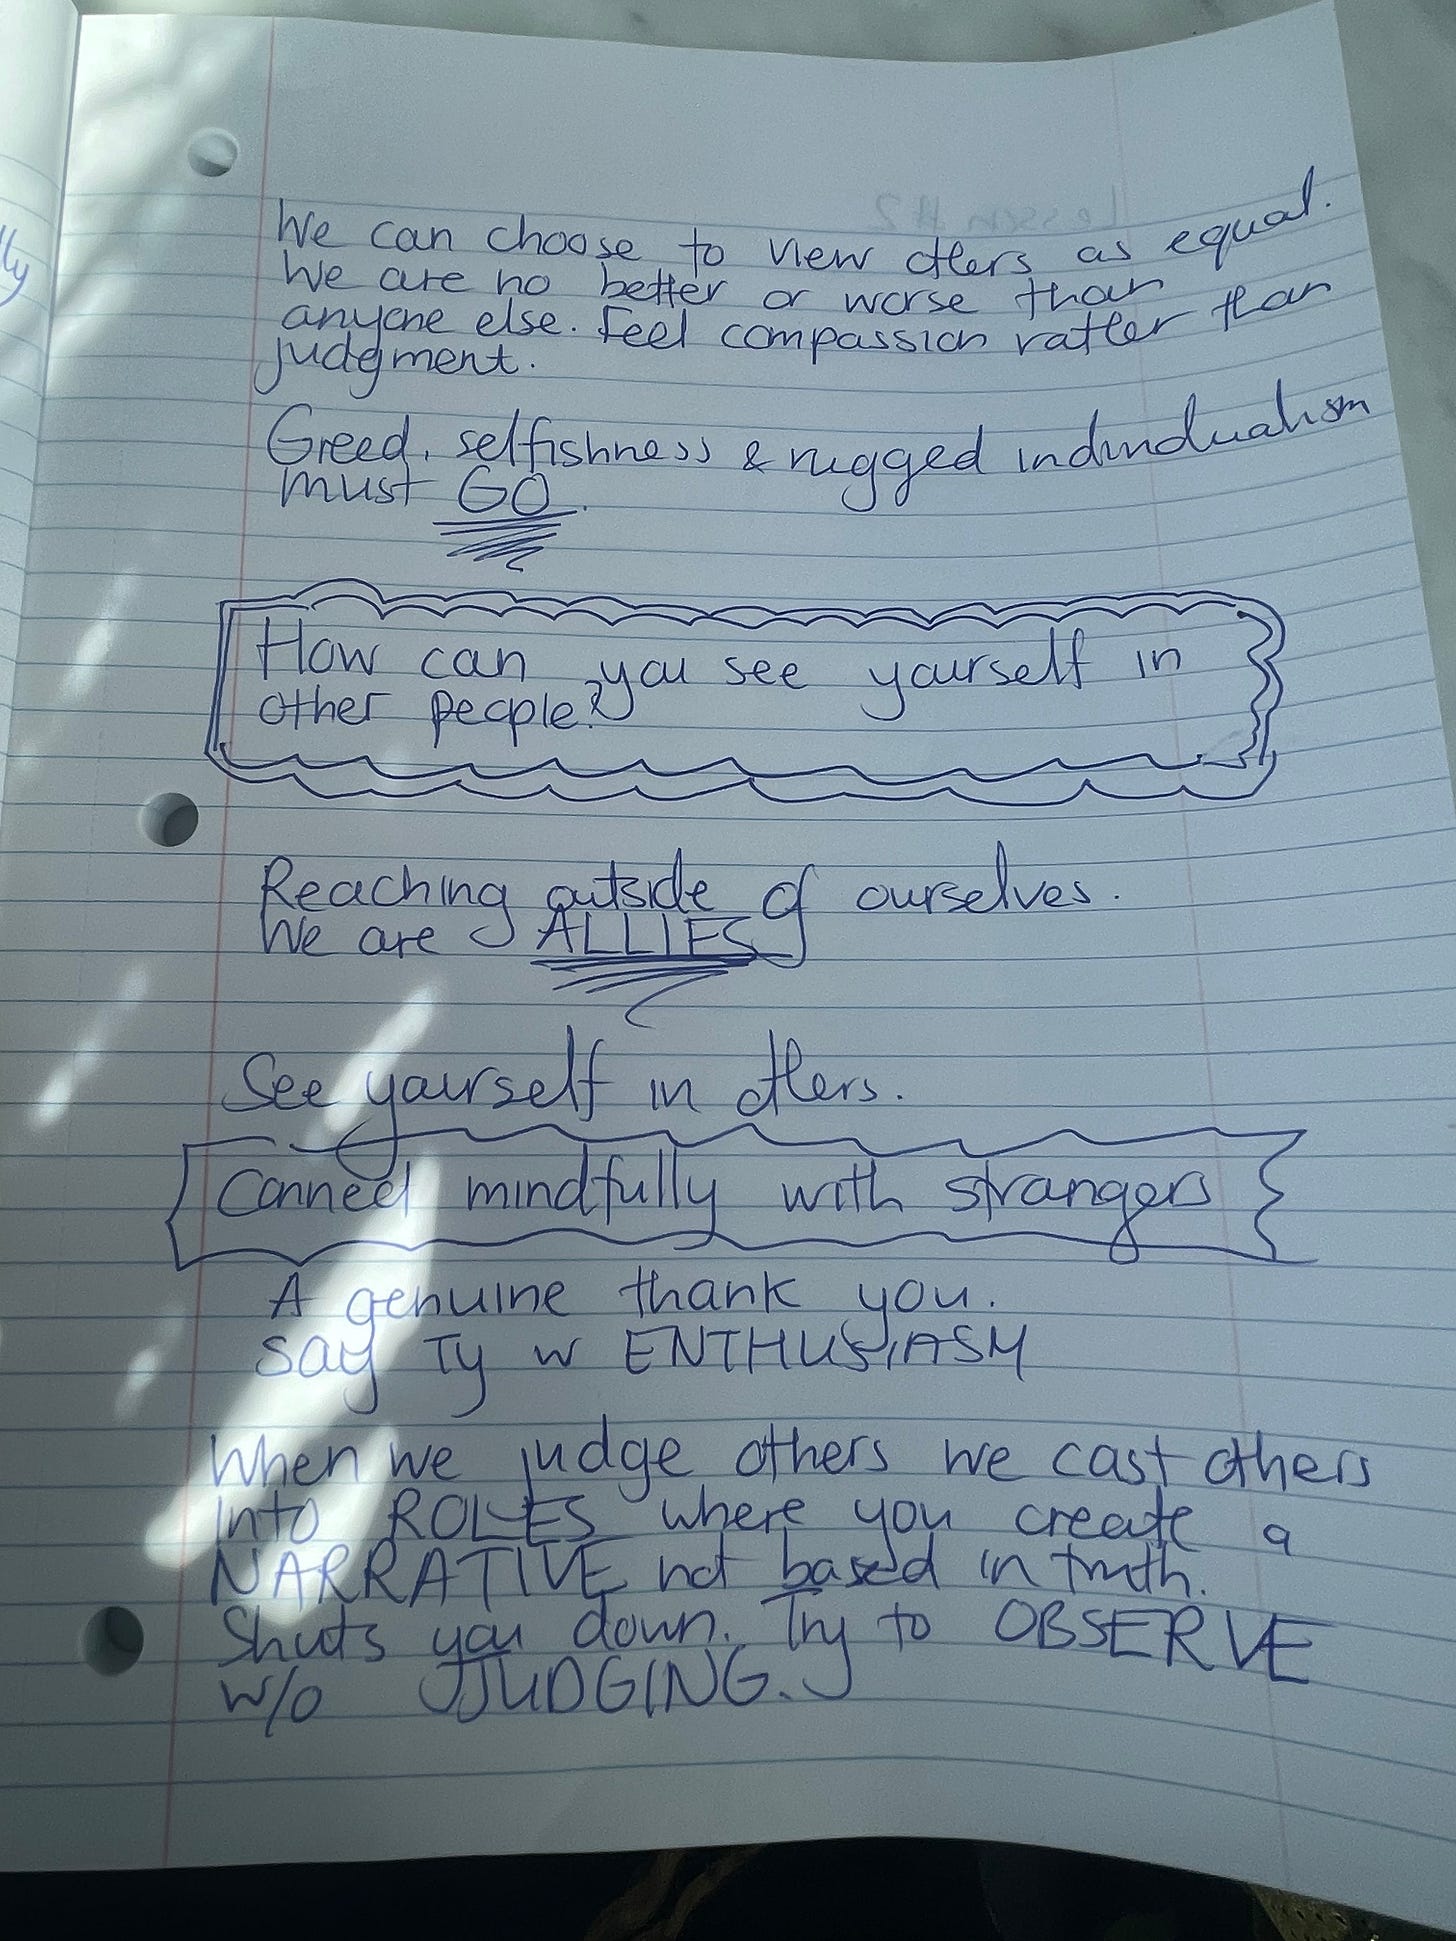 We can choose to view others as equal.
We are no better or worse than
anyone else. Feel compassion rather than
judgment.
Greed, selfishness & rugged individualism
must GO.
How can you see yourself in
other people?
Reaching outside of ourselves.
We are ALLIES
See yourself in others.
Connect mindfully with strangers
A genuine thank you.
say Ty w ENTHUSIASM
When we judge others we cast others
into ROLES where you create a
NARRATIVE not based in truth.
Shuts you down. Try to OBSERVE
w/o JUDGING.
Lesson #2
lly